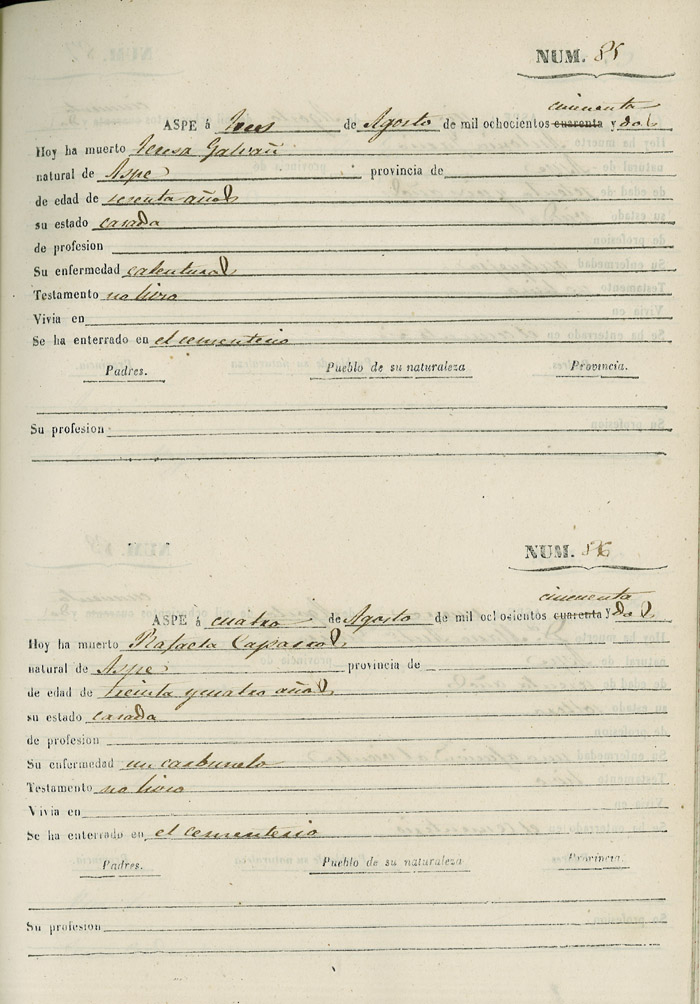 NUM. 85
cincuenta
ASPE á tres de Agosto de mil ochocientos cuarenta y dos
Hoy ha muerto Teresa Galvañ
natural de Aspe provincia de
de edad de sesenta años
su estado casada
de profesion
Su enfermedad calenturas
Testamento no hizo
Vivia en
Se ha enterrado en el cementerio
Padres. Pueblo de su naturaleza Provincia.
Su profesion
NUM. 86
cincuenta
ASPE á cuatro de Agosto de mil ochocientos cuarenta y dos
Hoy ha muerto Rafaela Caparros
natural de Aspe provincia de
de edad de treinta y cuatro años
su estado casada
de profesion
Su enfermedad un carbunclo
Testamento no hizo
Vivia en
Se ha enterrado en el cementerio
Padres. Pueblo de su naturaleza Provincia.
Su profesion